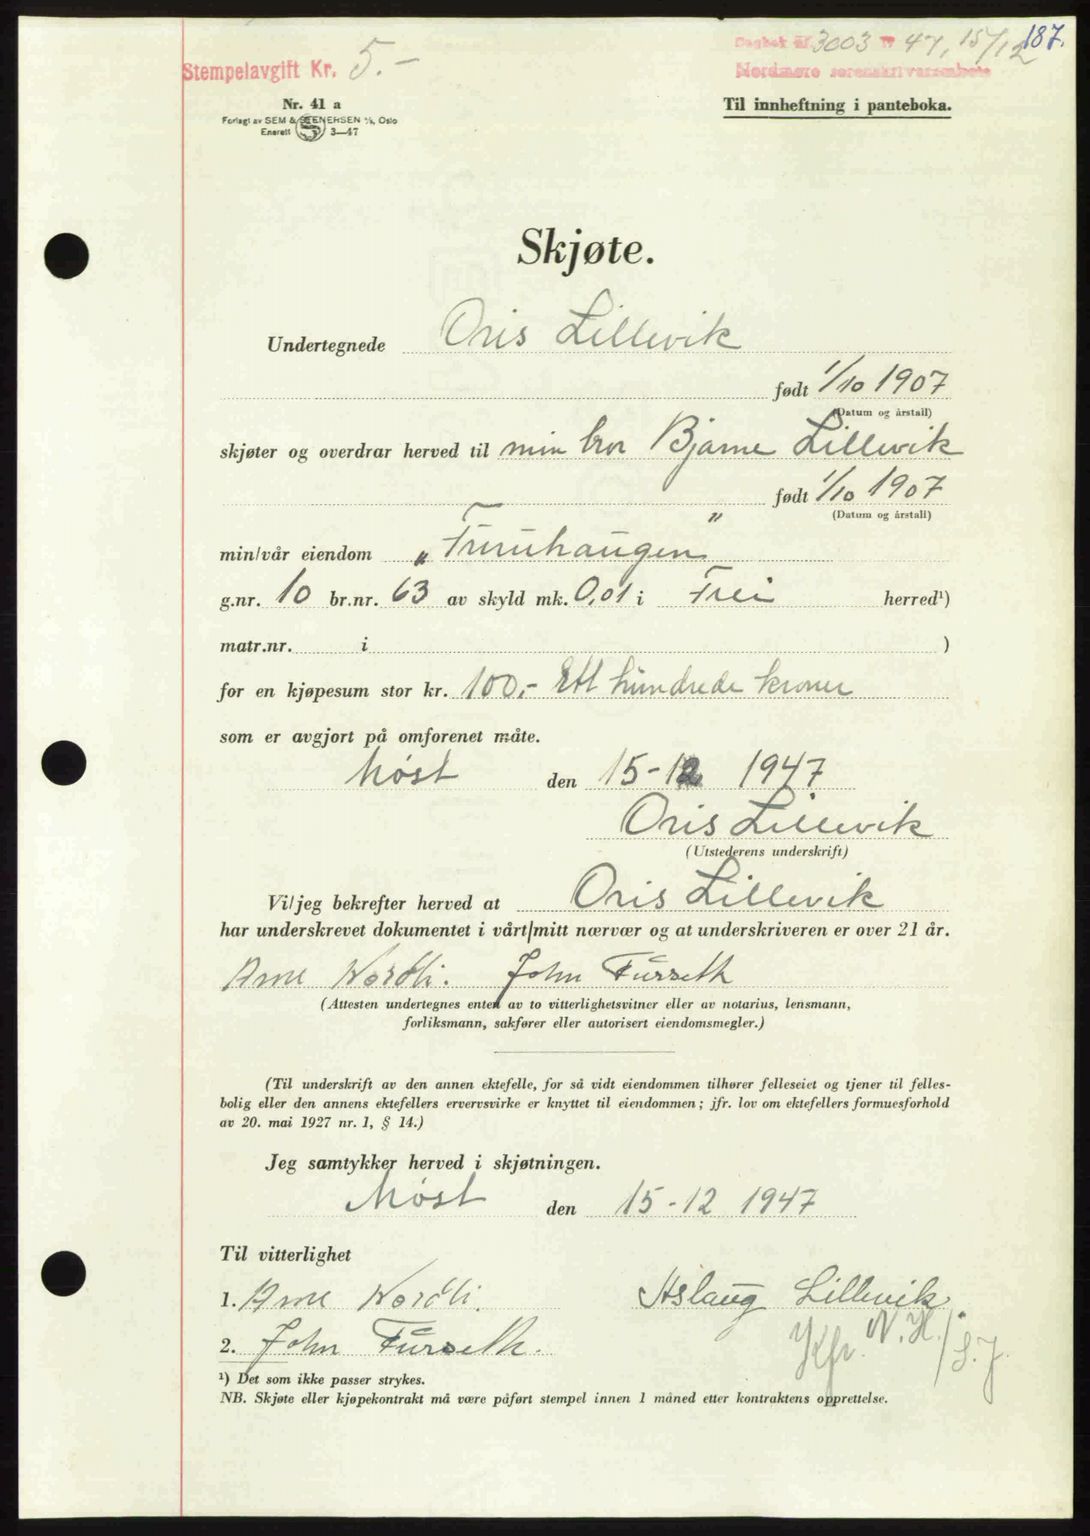 187.
Dagbok nr. 3003 19 47, 15/12
Nordmøre sorenskriverembete
Stempelavgift Kr. 5.-
Nr. 41 a
Forlagt av SEM & STENERSEN A/S, Oslo
Enerett S 3—47
Til innheftning i panteboka.
Skjøte.
Undertegnede Oris Lillevik
født 1/10 1907
(Datum og årstall)
skjøter og overdrar herved til min bror Bjarne Lillevik
født 1/10 1907
(Datum og årstall)
min/vår eiendom „Furuhaugen"
g.nr. 10 br.nr. 63 av skyld mk. 0,01 i Frei herred¹)
matr.nr. i )
for en kjøpesum stor kr. 100,- Ett hundrede kroner
som er avgjort på omforenet måte.
Møst den 15-12 1947
Oris Lillevik
(Utstederens underskrift)
Vi/jeg bekrefter herved at Oris Lillevik
har underskrevet dokumentet i vårt/mitt nærvær og at underskriveren er over 21 år.
Arne Nordli. John Furseth
(Attesten undertegnes enten av to vitterlighetsvitner eller av notarius, lensmann,
forliksmann, sakfører eller autorisert eiendomsmegler.)
(Til underskrift av den annen ektefelle, for så vidt eiendommen tilhører felleseiet og tjener til felles-
bolig eller den annens ektefellers ervervsvirke er knyttet til eiendommen; jfr. lov om ektefellers formuesforhold
av 20. mai 1927 nr. 1, § 14.)
Jeg samtykker herved i skjøtningen.
Møst den 15-12 1947
Til vitterlighet
1. Arne Nordli. Aslaug Lillevik.
2. John Furseth.
Kfr. N.H./S.J.
¹) Det som ikke passer strykes.
NB. Skjøte eller kjøpekontrakt må være påført stempel innen 1 måned etter kontraktens opprettelse.